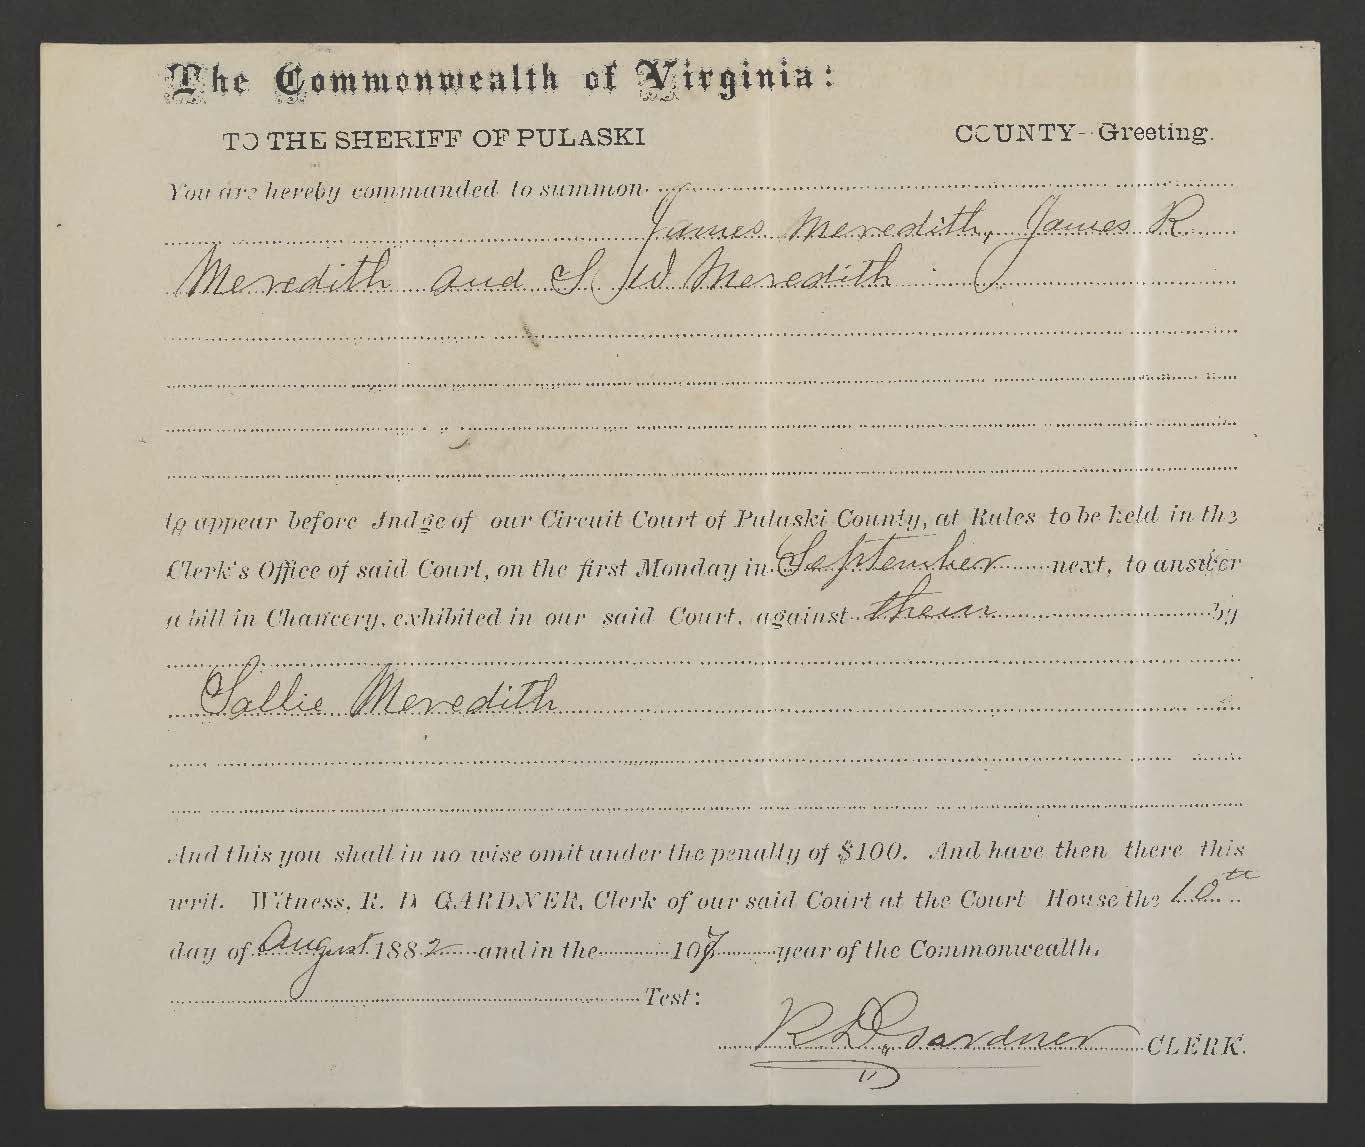 The Commonwealth of Virginia:
TO THE SHERIFF OF PULASKI COUNTY--Greeting.
You are hereby commanded to summon
James Meredith, James R
Meredith and S W Meredith
to appear before Judge of our Circuit Court of Pulaski County, at Rules to be held in the
Clerk's Office of said Court, on the first Monday in September next, to answer
a bill in Chancery, exhibited in our said Court, against them by
Sallie Meredith
And this you shall in no wise omit under the penalty of $100. And have then there this
writ. Witness, R. D GARDNER, Clerk of our said Court at the Court House the 10th
day of August 1882 and in the 107 year of the Commonwealth.
Test:
R D Gardner CLERK.